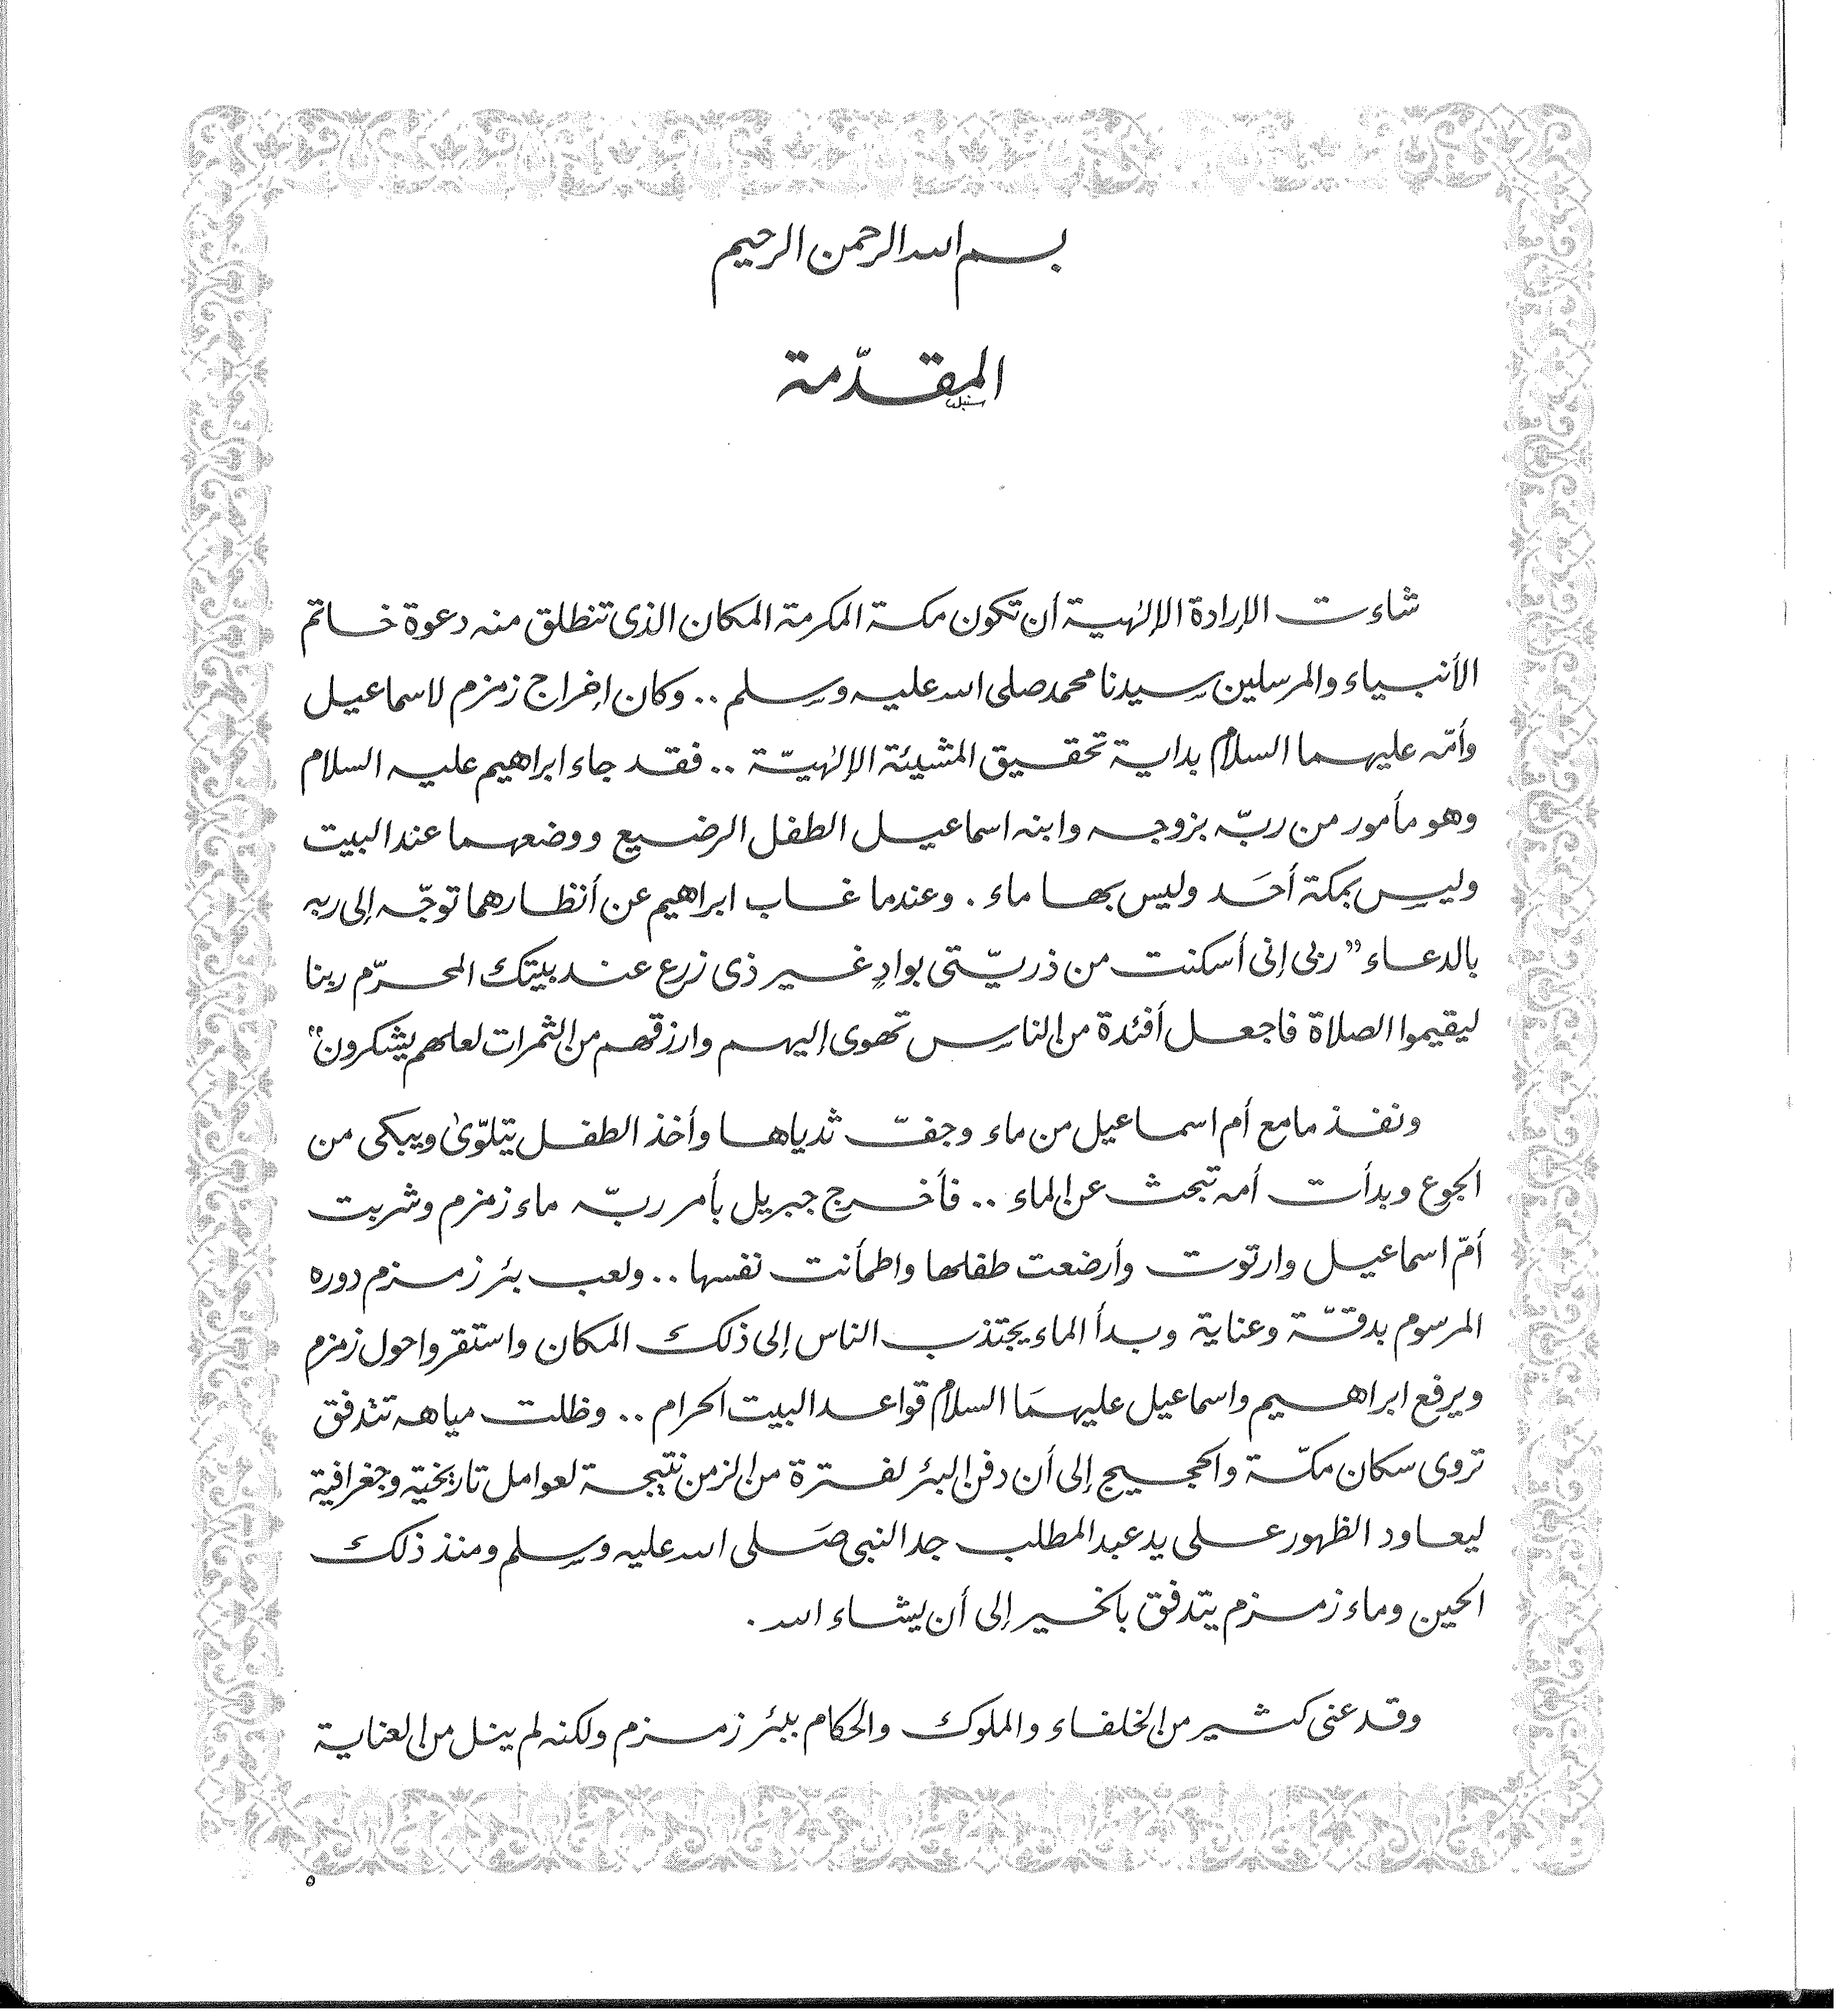 بسم الله الرحمن الرحيم
المقدّمة
شاءت الإرادة الإلهية أن تكون مكة المكرمة المكان الذى تنطلق منه دعوة خاتم
الأنبياء والمرسلين سيدنا محمد صلى الله عليه وسلم .. وكان إخراج زمزم لاسماعيل
وأمّه عليهما السلام بداية تحقيق المشيئة الإلهيّة .. فقد جاء ابراهيم عليه السلام
وهو مأمور من ربّه بزوجه وابنه اسماعيل الطفل الرضيع ووضعهما عند البيت
وليس بمكة أحَد وليس بها ماء . وعندما غاب ابراهيم عن أنظارهما توجّه إلى ربه
بالدعاء ” ربى إنى أسكنت من ذريّتى بوادٍ غير ذى زرع عند بيتك المحرّم ربنا
ليقيموا الصلاة فاجعل أفئدة من الناس تهوى إليهم وارزقهم من الثمرات لعلهم يشكرون “
ونفذ مامع أم اسماعيل من ماء وجفّ ثدياها وأخذ الطفل يتلوّى ويبكى من
الجوع وبدأت أمه تبحث عن الماء .. فأخرج جبريل بأمر ربّه ماء زمزم وشربت
أمّ اسماعيل وارتوت وأرضعت طفلها واطمأنت نفسها .. ولعب بئر زمزم دوره
المرسوم بدقّة وعناية وبدأ الماء يجتذب الناس إلى ذلك المكان واستقروا حول زمزم
ويرفع ابراهيم واسماعيل عليهمَا السلام قواعد البيت الحرام .. وظلت مياهه تتدفق
تروى سكان مكّة والحجيج إلى أن دفن البئر لفترة من الزمن نتيجة لعوامل تاريخية وجغرافية
ليعاود الظهور على يد عبد المطلب جد النبى صَلى الله عليه وسلم ومنذ ذلك
الحين وماء زمزم يتدفق بالخير إلى أن يشاء الله .
وقد عنى كثير من الخلفاء والملوك والحكام ببئر زمزم ولكنه لم ينل من العناية
٥